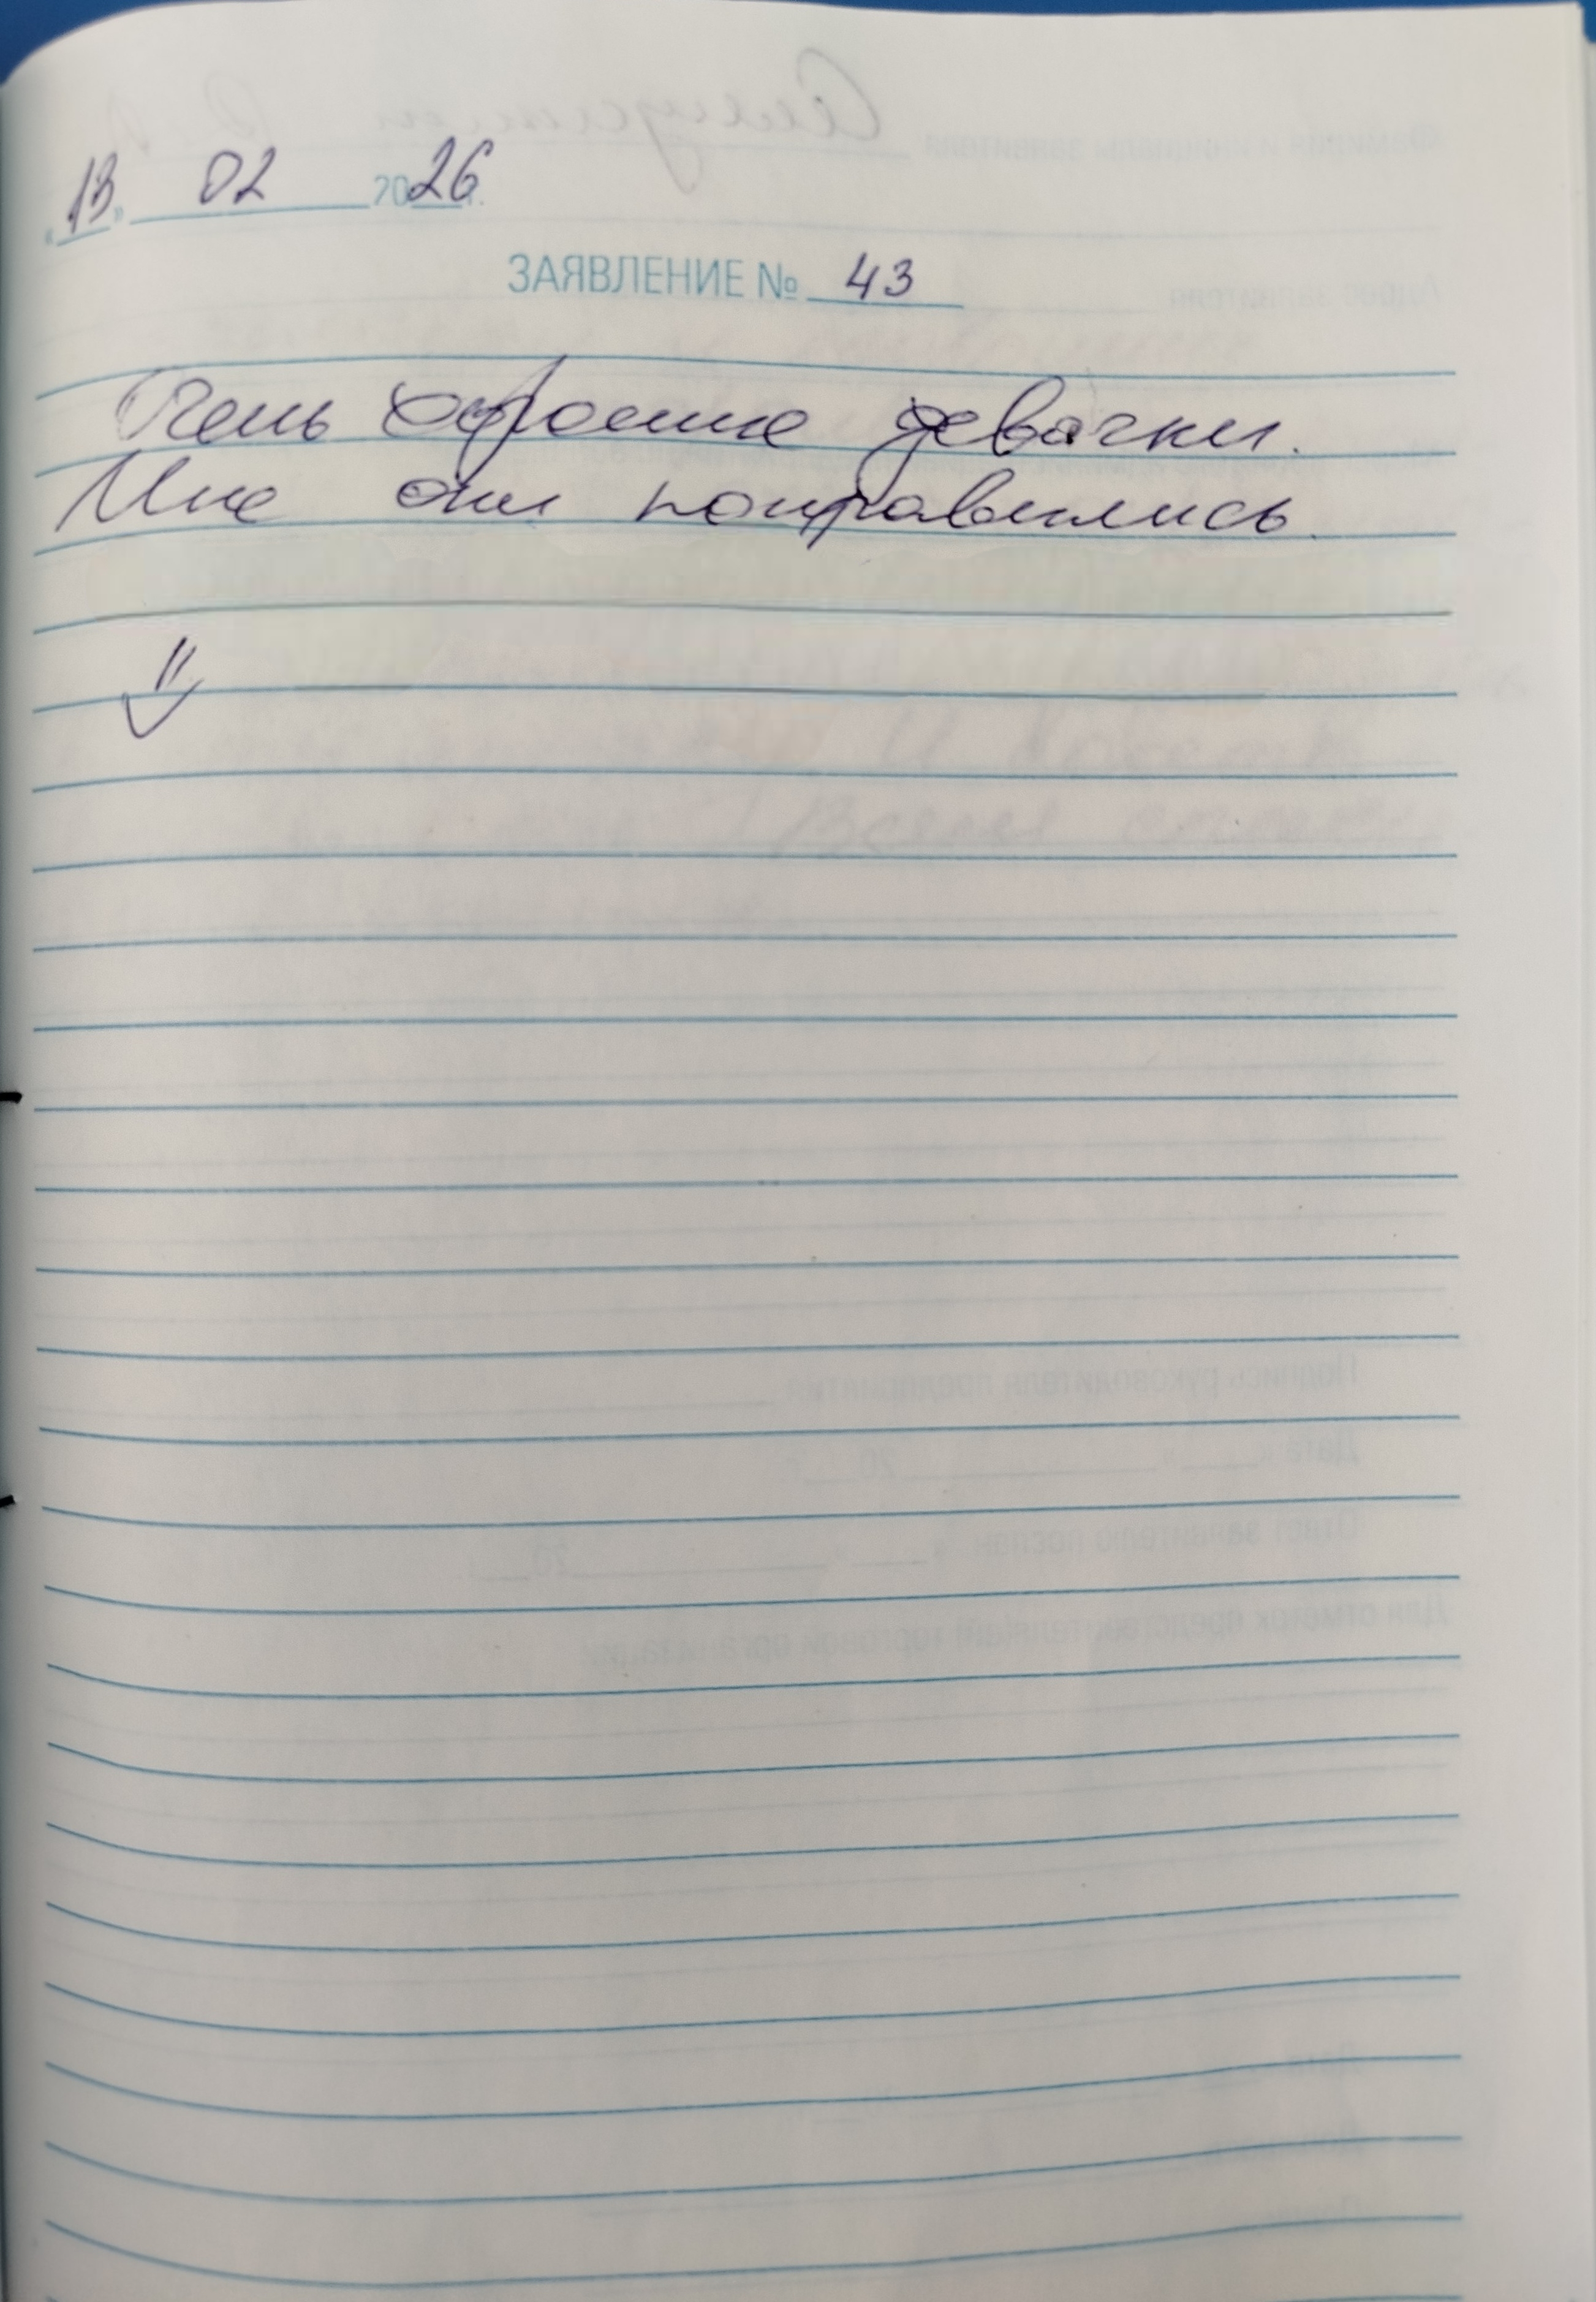 «13» 02 2026 г.
ЗАЯВЛЕНИЕ № 43
Очень хорошие девочки.
Мне они понравились.